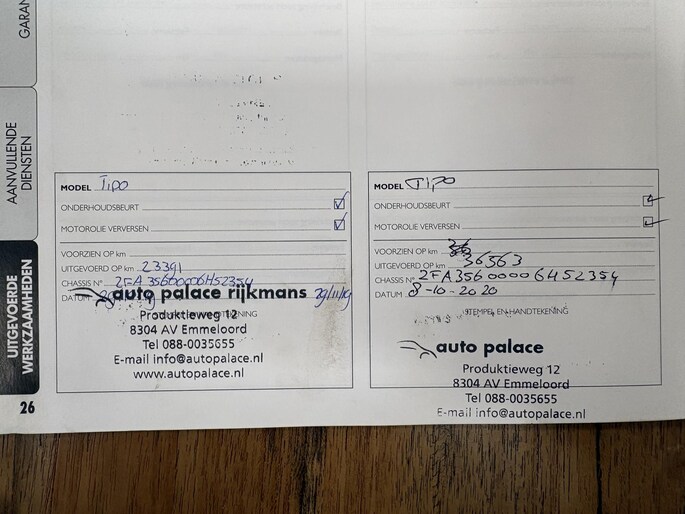 GARAN
AANVULLENDE
DIENSTEN
UITGEVOERDE
WERKZAAMHEDEN
26
MODEL Tipo
ONDERHOUDSBEURT ☑
MOTOROLIE VERVERSEN ☑
VOORZIEN OP km
UITGEVOERD OP km 23391
CHASSIS N° 2FA35600006H52354
DATUM 29/11/19
auto palace rijkmans
Produktieweg 12
8304 AV Emmeloord
Tel 088-0035655
E-mail info@autopalace.nl
www.autopalace.nl
MODEL Tipo
ONDERHOUDSBEURT ☑
MOTOROLIE VERVERSEN ☑
VOORZIEN OP km
UITGEVOERD OP km 36563
CHASSIS N° 2FA35600006H52354
DATUM 8-10-2020
STEMPEL EN HANDTEKENING
auto palace
Produktieweg 12
8304 AV Emmeloord
Tel 088-0035655
E-mail info@autopalace.nl